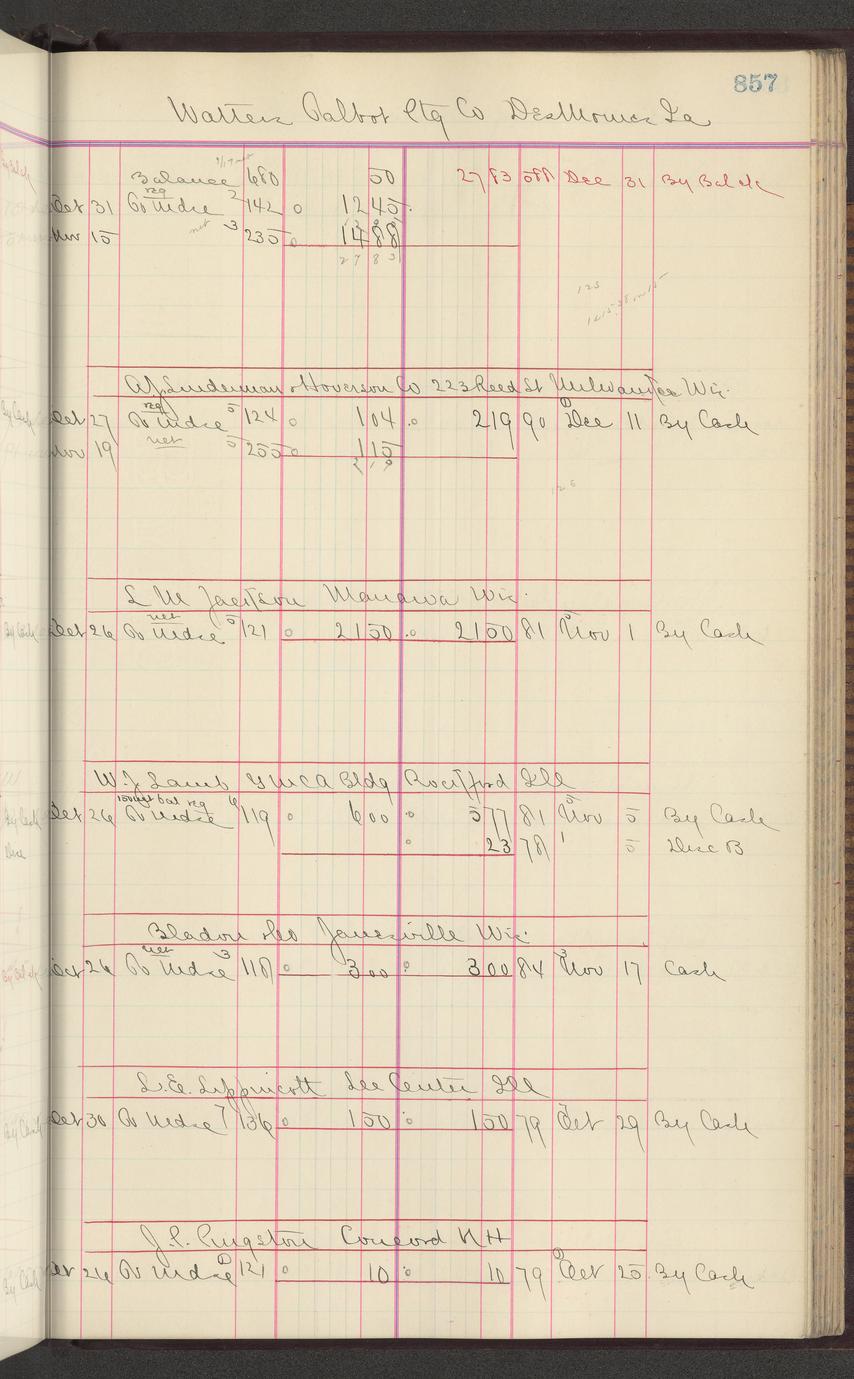 857
Watters Talbot Ptg Co DesMoines Ia
Balance 680 50 27 83 588 Dec 31 By Bal
Oct 31 To Mdse 2 142 12 45
req
Nov 15 net 3 235 14 88
27 83
125
A.J. Lindeman & Hoverson Co 223 Reed St Milwaukee Wis.
req
Oct 27 To Mdse 5 124 1 04 2 19 90 Dec 11 By Cash
Nov 19 net 5 255 1 15
2 19
126
L M Jackson Manawa Wis.
net
Oct 26 To Mdse 5 121 21 50 21 50 81 Nov 1 By Cash
W.J. Lamb YMCA Bldg Rockford Ill
bal req
Oct 26 To Mdse 6 119 6 00 5 77 81 5 Nov 5 By Cash
23 78 1 5 Disc B
Bladon & Co Janesville Wis.
net
Oct 26 To Mdse 3 118 3 00 3 00 84 3 Nov 17 Cash
L.E. Lippincott Lee Center Ill
Oct 30 To Mdse 7 136 1 50 1 50 79 7 Oct 29 By Cash
J.C. Pingston Concord N H
Oct 26 To Mdse 1 121 10 10 79 Oct 25 By Cash